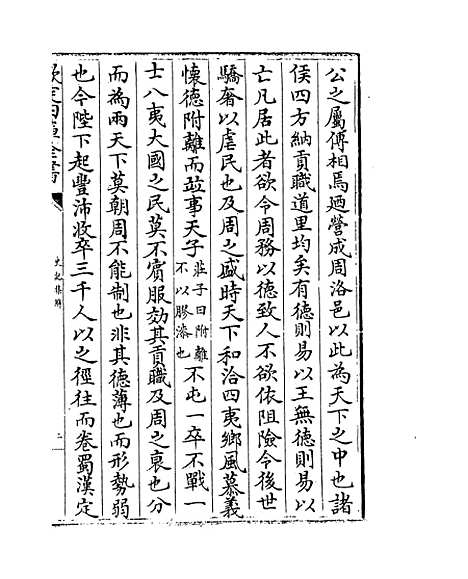 公之屬傅相焉廼營成周洛邑以此為天下之中也諸
侯四方納貢職道里均矣有德則易以王無德則易以
亡凡居此者欲令周務以德致人不欲依阻險令後世
驕奢以虐民也及周之盛時天下和洽四夷鄉風慕義
懷德附離而竝事天子莊子曰附離不以膠漆也不屯一卒不戰一
士八夷大國之民莫不賓服効其貢職及周之衰也分
而為兩天下莫朝周不能制也非其德薄也而形勢弱
也今陛下起豐沛收卒三千人以之徑往而卷蜀漢定
欽定四庫全書
史記集解
二